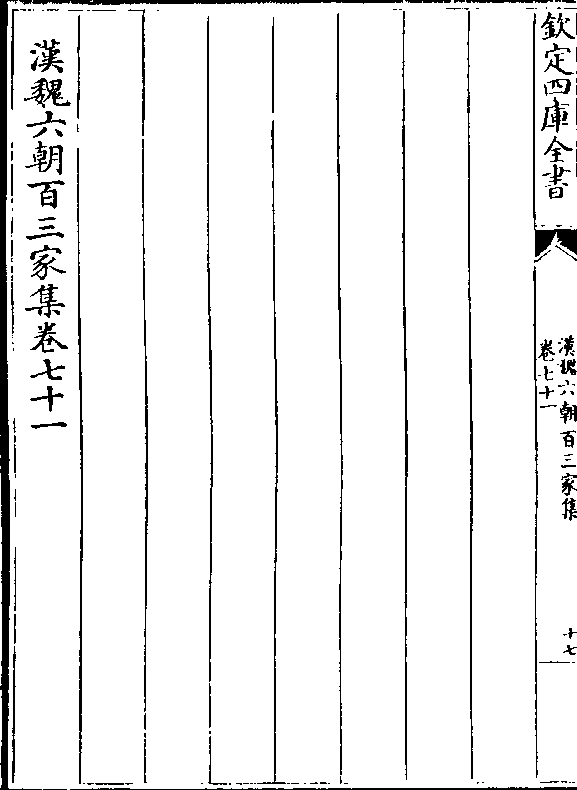 欽定四庫全書
漢魏六朝百三家集
卷七十一
十七
漢魏六朝百三家集卷七十一